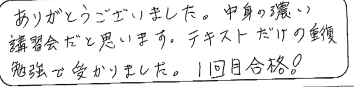 ありがとうございました。中身の濃い
講習会だと思います。テキストだけの重複
勉強で受かりました。1回目合格!